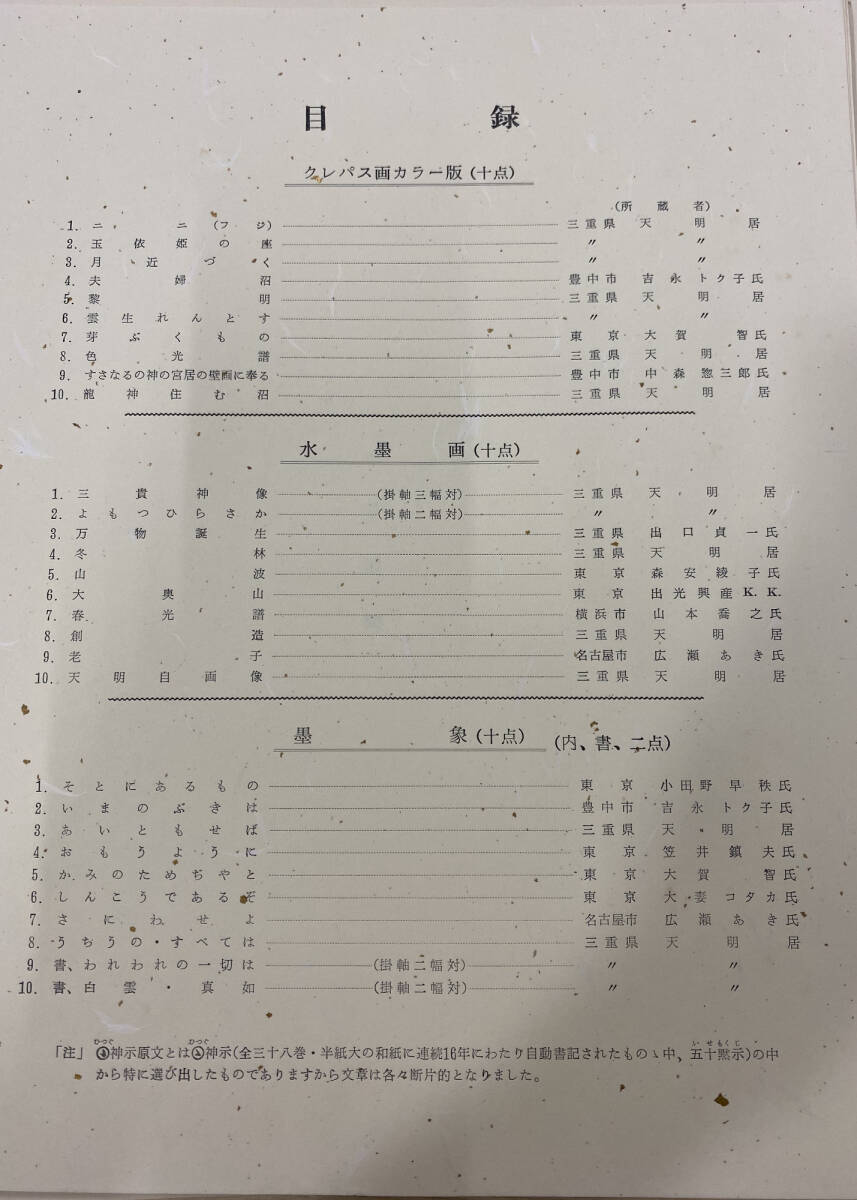 目録
クレパス画カラー版(十点)
(所蔵者)
1. ニニ(フジ) 三重県 天明居
2. 玉依姫の座 〃 〃
3. 月近づく 〃 〃
4. 夫婦沼 豊中市 吉永トク子氏
5. 黎明 三重県 天明居
6. 雲生れんとす 〃 〃
7. 芽ぶくもの 東京 大賀智氏
8. 色光譜 三重県 天明居
9. すさなるの神の宮居の壁画に奉る 豊中市 中森惣三郎氏
10. 龍神住む沼 三重県 天明居
水墨画(十点)
1. 三貴神像 (掛軸三幅対) 三重県 天明居
2. よもつひらさか (掛軸二幅対) 〃 〃
3. 万物誕生 三重県 出口貞一氏
4. 冬林 三重県 天明居
5. 山波 東京 森安綾子氏
6. 大奥山 東京 出光興産K.K.
7. 春光譜 横浜市 山本喬之氏
8. 創造 三重県 天明居
9. 老子 名古屋市 広瀬あき氏
10. 天明自画像 三重県 天明居
墨象(十点) (内、書、二点)
1. そとにあるもの 東京 小田野早秧氏
2. いまのぶきは 豊中市 吉永トク子氏
3. あいともせば 三重県 天明居
4. おもうように 東京 笠井鎮夫氏
5. かみのためぢやと 東京 大賀智氏
6. しんこうであるぞ 東京 大妻コタカ氏
7. さにわせよ 名古屋市 広瀬あき氏
8. うちうの・すべては 三重県 天明居
9. 書、われわれの一切は (掛軸二幅対) 〃 〃
10. 書、白雲・真如 (掛軸二幅対) 〃 〃
ひつぐ ひつぐ いせもくじ
「注」 神示原文とは神示(全三十八巻・半紙大の和紙に連続16年にわたり自動書記されたものゝ中、五十黙示)の中
から特に選び出したものでありますから文章は各々断片的となりました。